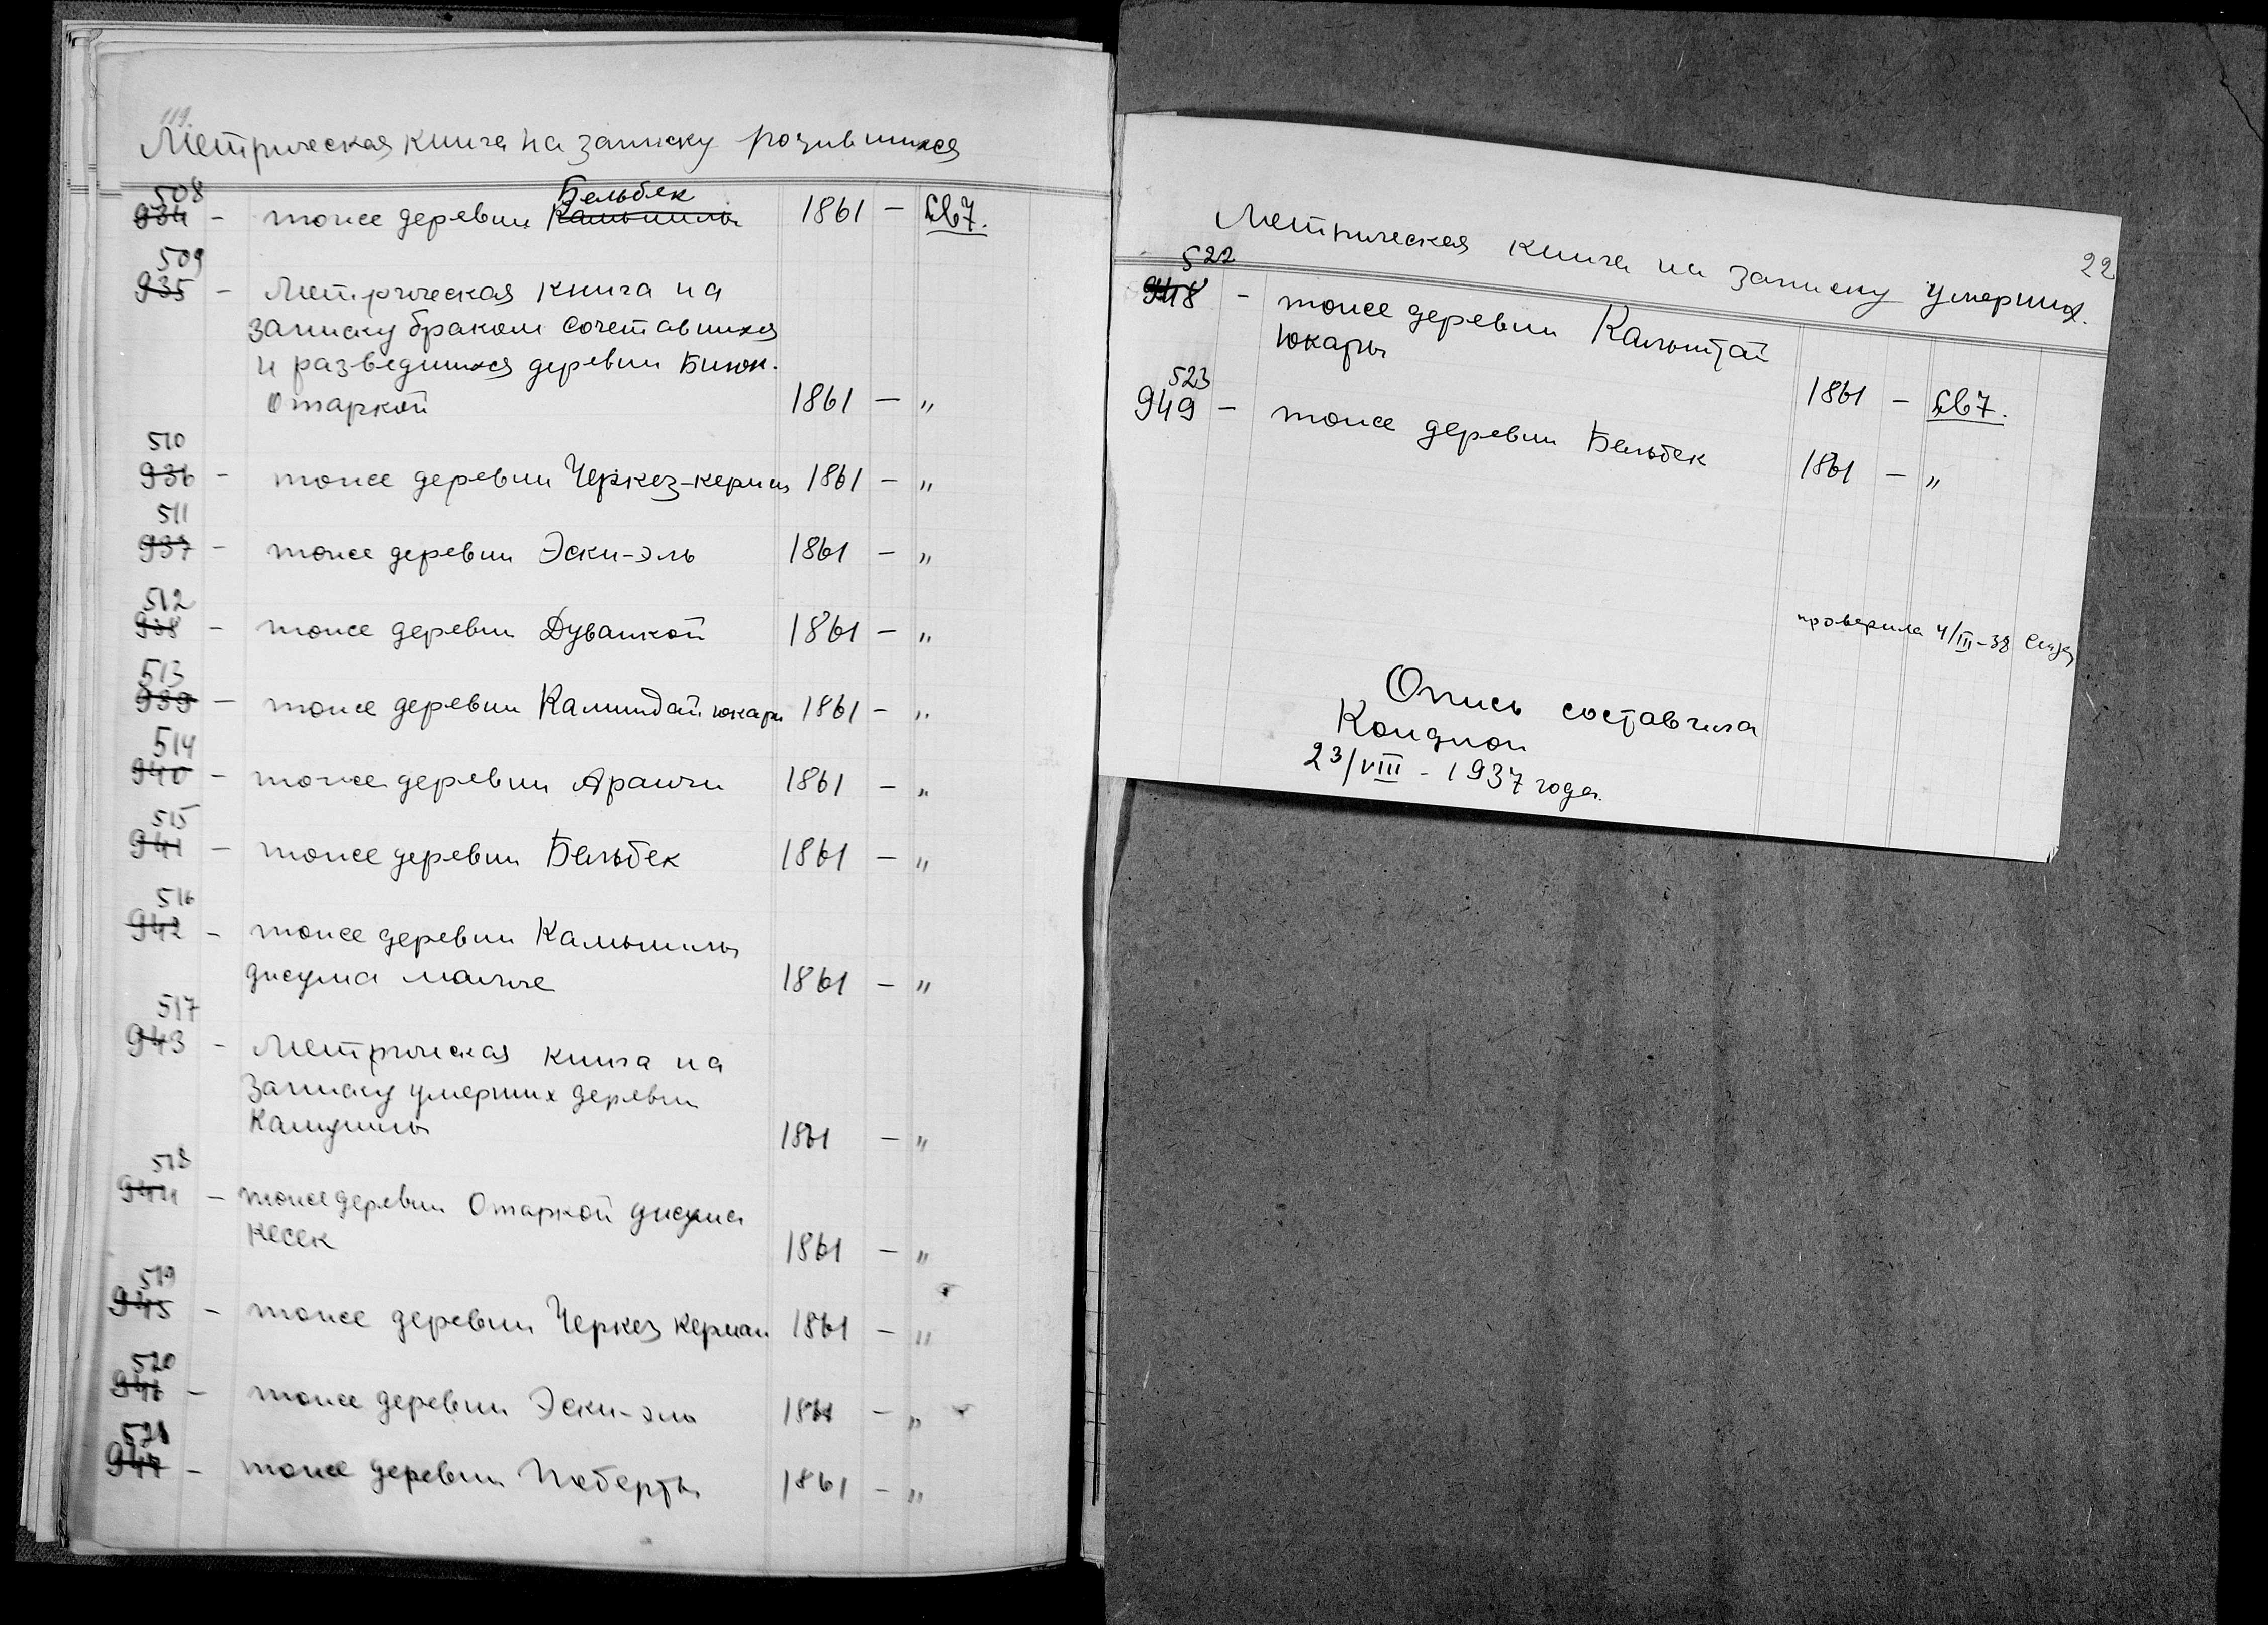 119.
Метрическая книга на записку родившихся
508
934 - тоже деревни Камышлы Бельбек 1861 - Св 7.
509
935 - Метрическая книга на
записку браком сочетавшихся
и разведшихся деревни Биюк.
Отаркой 1861 - "
510
936 - тоже деревни Черкез-кермен 1861 - "
511
937 - тоже деревни Эски-эль 1861 - "
512
938 - тоже деревни Дуванкой 1861 - "
513
939 - тоже деревни Калымтай юкары 1861 - "
514
940 - тоже деревни Аранчи 1861 - "
515
941 - тоже деревни Бельбек 1861 - "
516
942 - тоже деревни Камышлы
джума 1861 - "
517
943 - Метрическая книга на
записку умерших деревни
Камышлы 1861 - "
518
944 - тоже деревни Отаркой джума
кесек 1861 - "
519
945 - тоже деревни Черкез керман 1861 - "
520
946 - тоже деревни Эски-эль 1861 - "
521
947 - тоже деревни 1861 - "
22
Метрическая книга на записку умерших.
522
948 - тоже деревни Калымтай
юкары 1861 - Св 7.
523
949 - тоже деревни Бельбек 1861 - "
проверила 4/III-38
Опись составила
23/VIII - 1937 года.